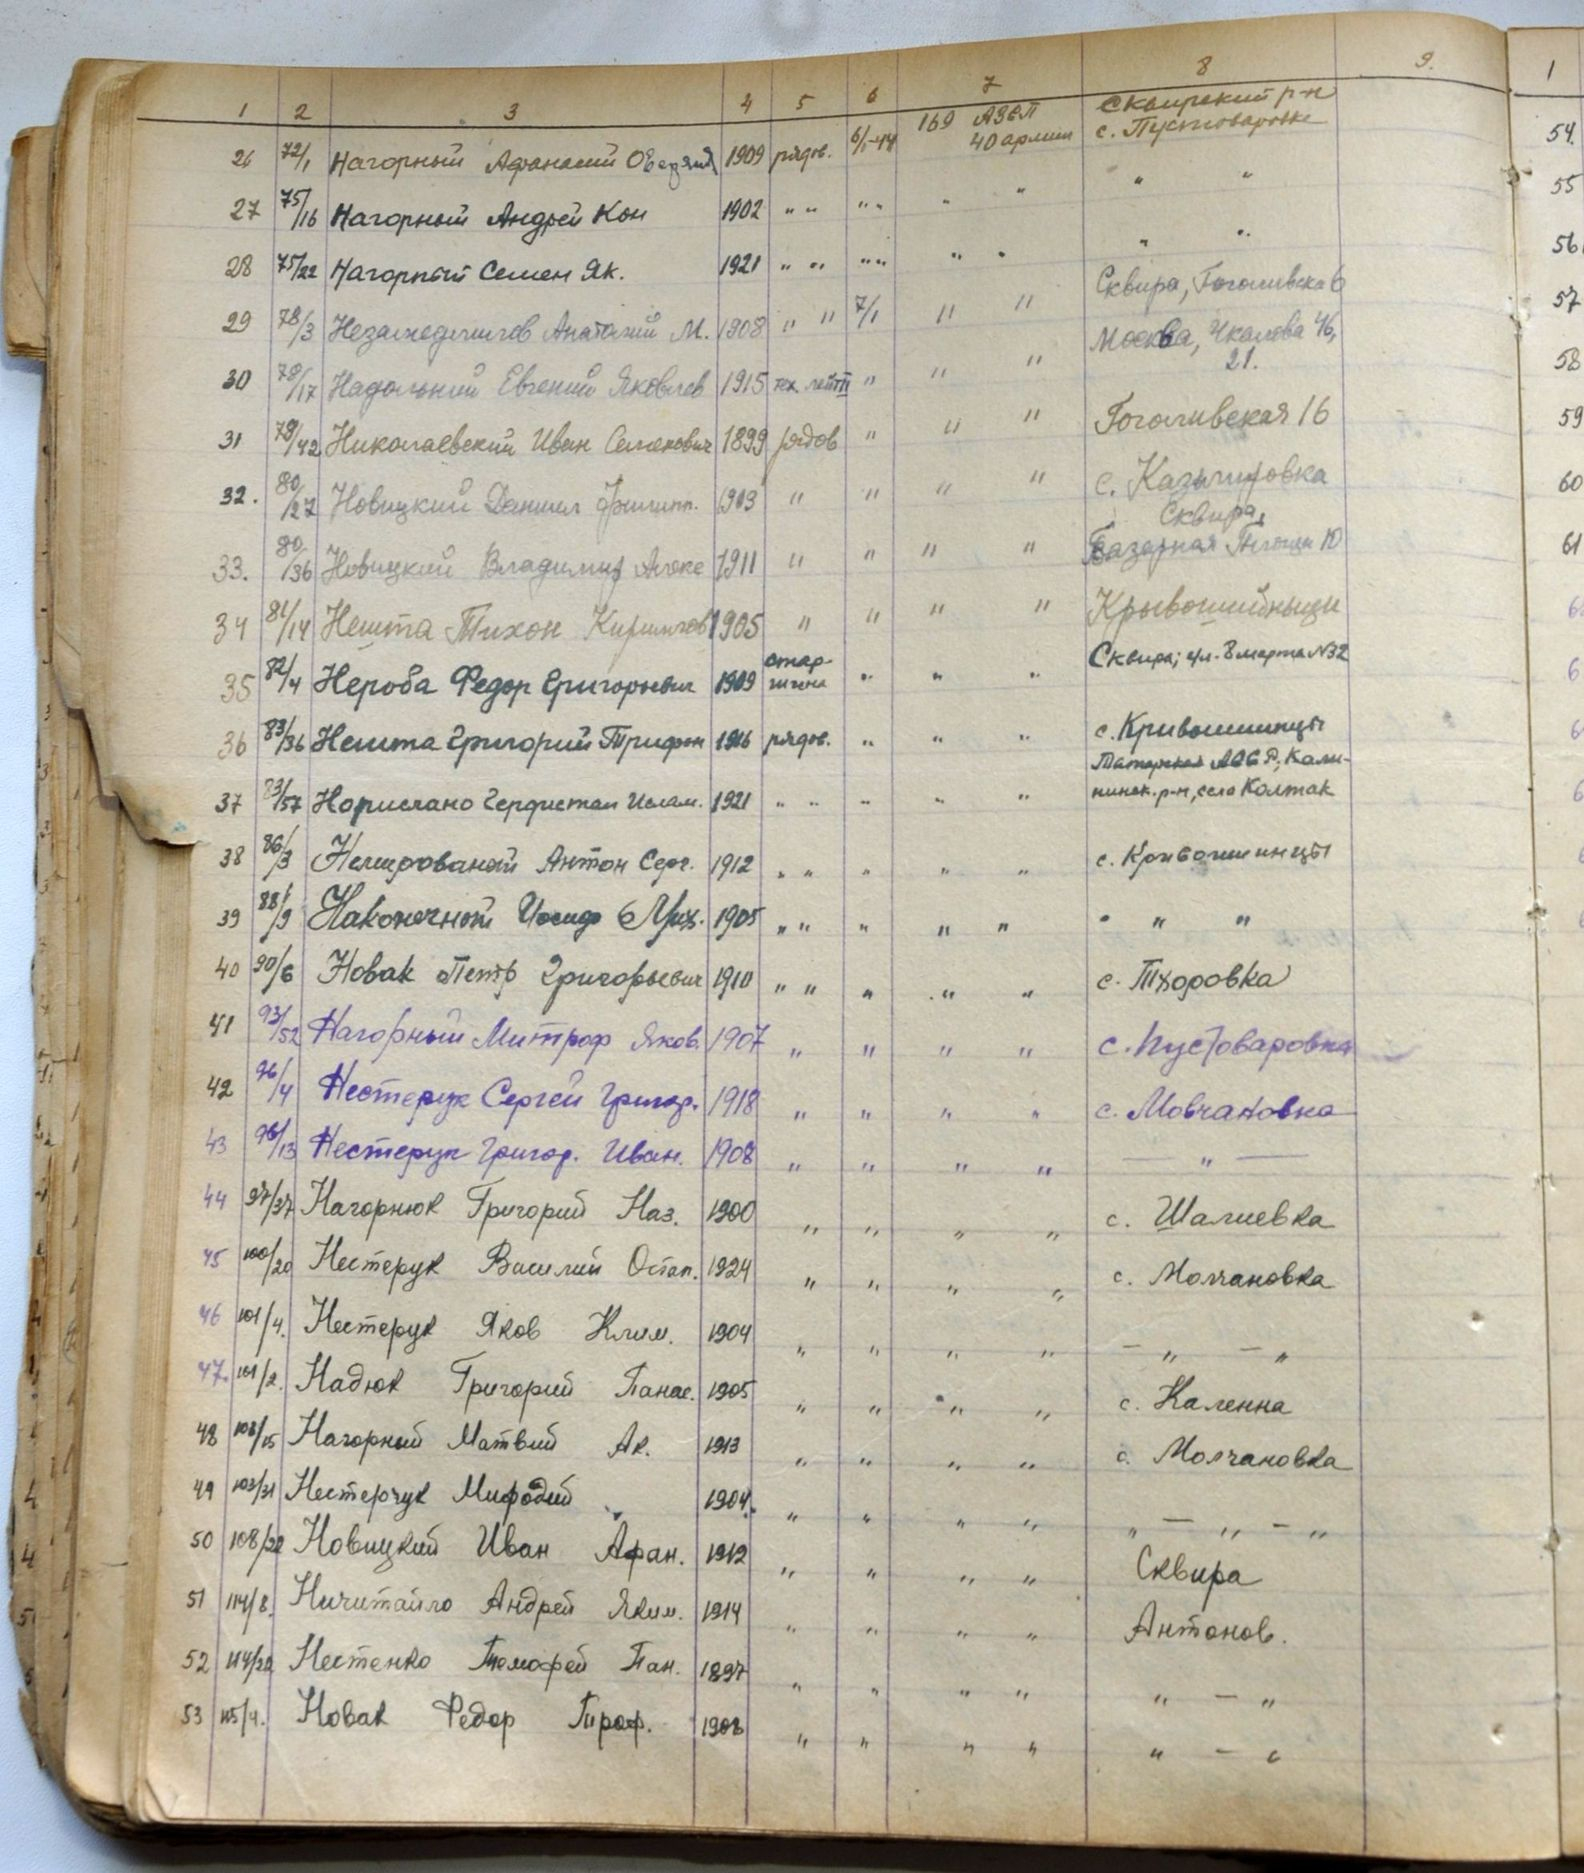 1 2 3 4 5 6 7 8 9.
26 72/1 Нагорный Афанасий 1909 рядов. 6/I-44 169 АЗСП 40 армии Сквирский р-н с. Пустоваровка
27 75/16 Нагорный Андрей Кон 1902 " " " " " " " "
28 75/22 Нагорный Семен Як. 1921 " " " " " " " "
29 78/3 Анатолий М. 1908 " " 7/1 " " Сквира, Гоголивская 6
30 78/17 Надольний Евгений Яковлев 1915 тех. лейт " " " Москва, Чкалова 46, 21.
31 78/42 Николаевский Иван Семенович 1899 рядов " " " Гоголивская 16
32. 80/27 Новицкий Даниил Филипп. 1903 " " " " с. Казимировка
33. 80/36 Новицкий Владимир Алекс 1911 " " " " Сквира, Базарная 10
34 81/14 Нешта Тихон Кирилов 1905 " " " "
35 82/4 Нероба Федор Григорьевич 1909 старшина " " " Сквира, ул. 8 марта №32
36 83/36 Нешта Григорий Трифон 1916 рядов. " " " с. Кривошиинцы
37 83/57 Ислам. 1921 " " " " " Татарская АССР, Калининск. р-н, село Колтак
38 86/3 Антон Серг. 1912 " " " " " с. Кривошиинцы
39 88/9 Наконечный Иосиф Мих. 1905 " " " " " " " "
40 90/6 Новак Петр Григорьевич 1910 " " " " " с. Тхоровка
41 93/52 Нагорный Митроф Яков. 1907 " " " " с. Пустоваровка
42 96/4 Нестерук Сергей Григор. 1918 " " " " с. Мовчановка
43 96/13 Нестерук Григор. Иван. 1908 " " " " — " —
44 97/37 Нагорнюк Григорий Наз. 1900 " " " " с. Шалиевка
45 100/20 Нестерук Василий Остап. 1924 " " " " с. Молчановка
46 101/4. Нестерук Яков Клим. 1904 " " " " — " — "
47. 101/2. Надюк Григорий Панас. 1905 " " " " с. Каленна
48 103/15 Нагорный Матвий Ак. 1913 " " " " с. Молчановка
49 103/31 Нестерчук Мифодий " 1904. " " " " " — " — "
50 108/22 Новицкий Иван Афан. 1912 " " " " Сквира
51 114/8. Ничитайло Андрей Яким. 1914 " " " " Антонов.
52 114/22 Нестенко Тимофей Пан. 1897 " " " " " — "
53 115/4. Новак Федор Троф. 1908 " " " " " — "
1
54.
55
56
57
58
59
60
61